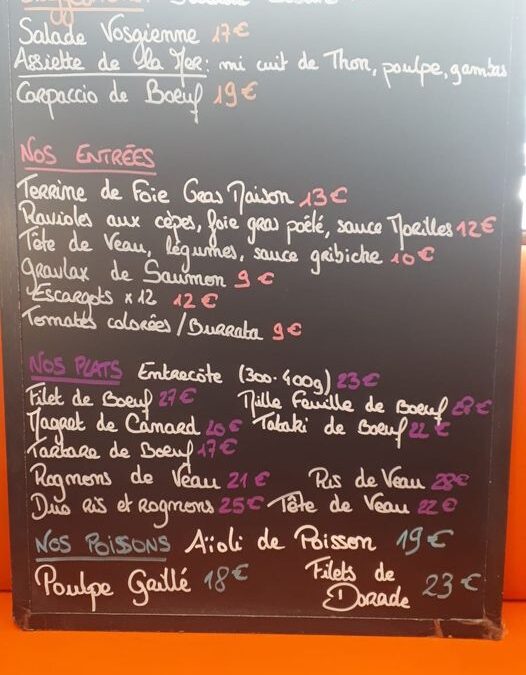 Salade Vosgienne 17€
Assiette de la Mer: mi cuit de Thon, poulpe, gambas
Carpaccio de Boeuf 19€
NOS ENTRÉES
Terrine de Foie Gras Maison 13€
Ravioles aux cèpes, foie gras poêlé, sauce Morilles 12€
Tête de Veau, légumes, sauce gribiche 10€
Gravlax de Saumon 9€
Escargots x12 12€
Tomates colorées/Burrata 9€
NOS PLATS Entrecôte (300-400g) 23€
Filet de Boeuf 27€ Mille Feuille de Boeuf
Magret de Canard 20€ Tataki de Boeuf 22€
Tartare de Boeuf 17€
Rognons de Veau 21€ Ris de Veau 28€
Duo Ris et Rognons 25€ Tête de Veau 22€
NOS POISSONS Aïoli de Poisson 19€
Poulpe Grillé 18€ Filets de Dorade 23€